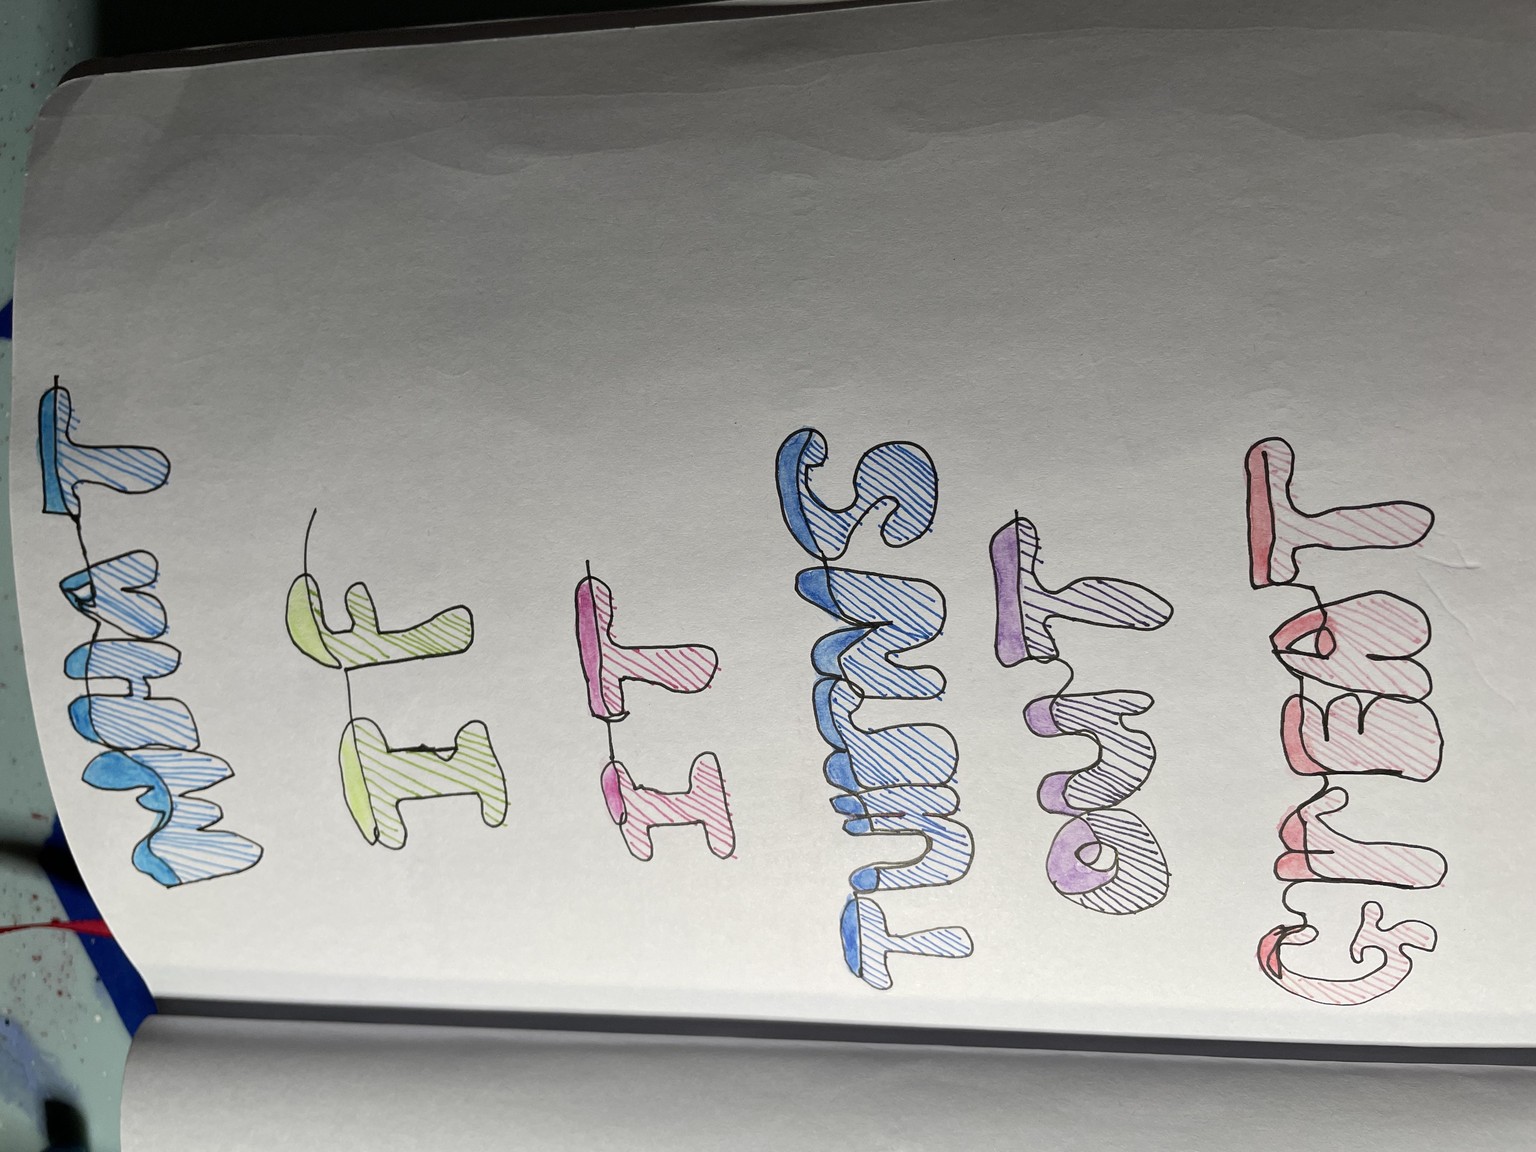 WHAT
IF
IT
TURNS
OUT
GrEAT